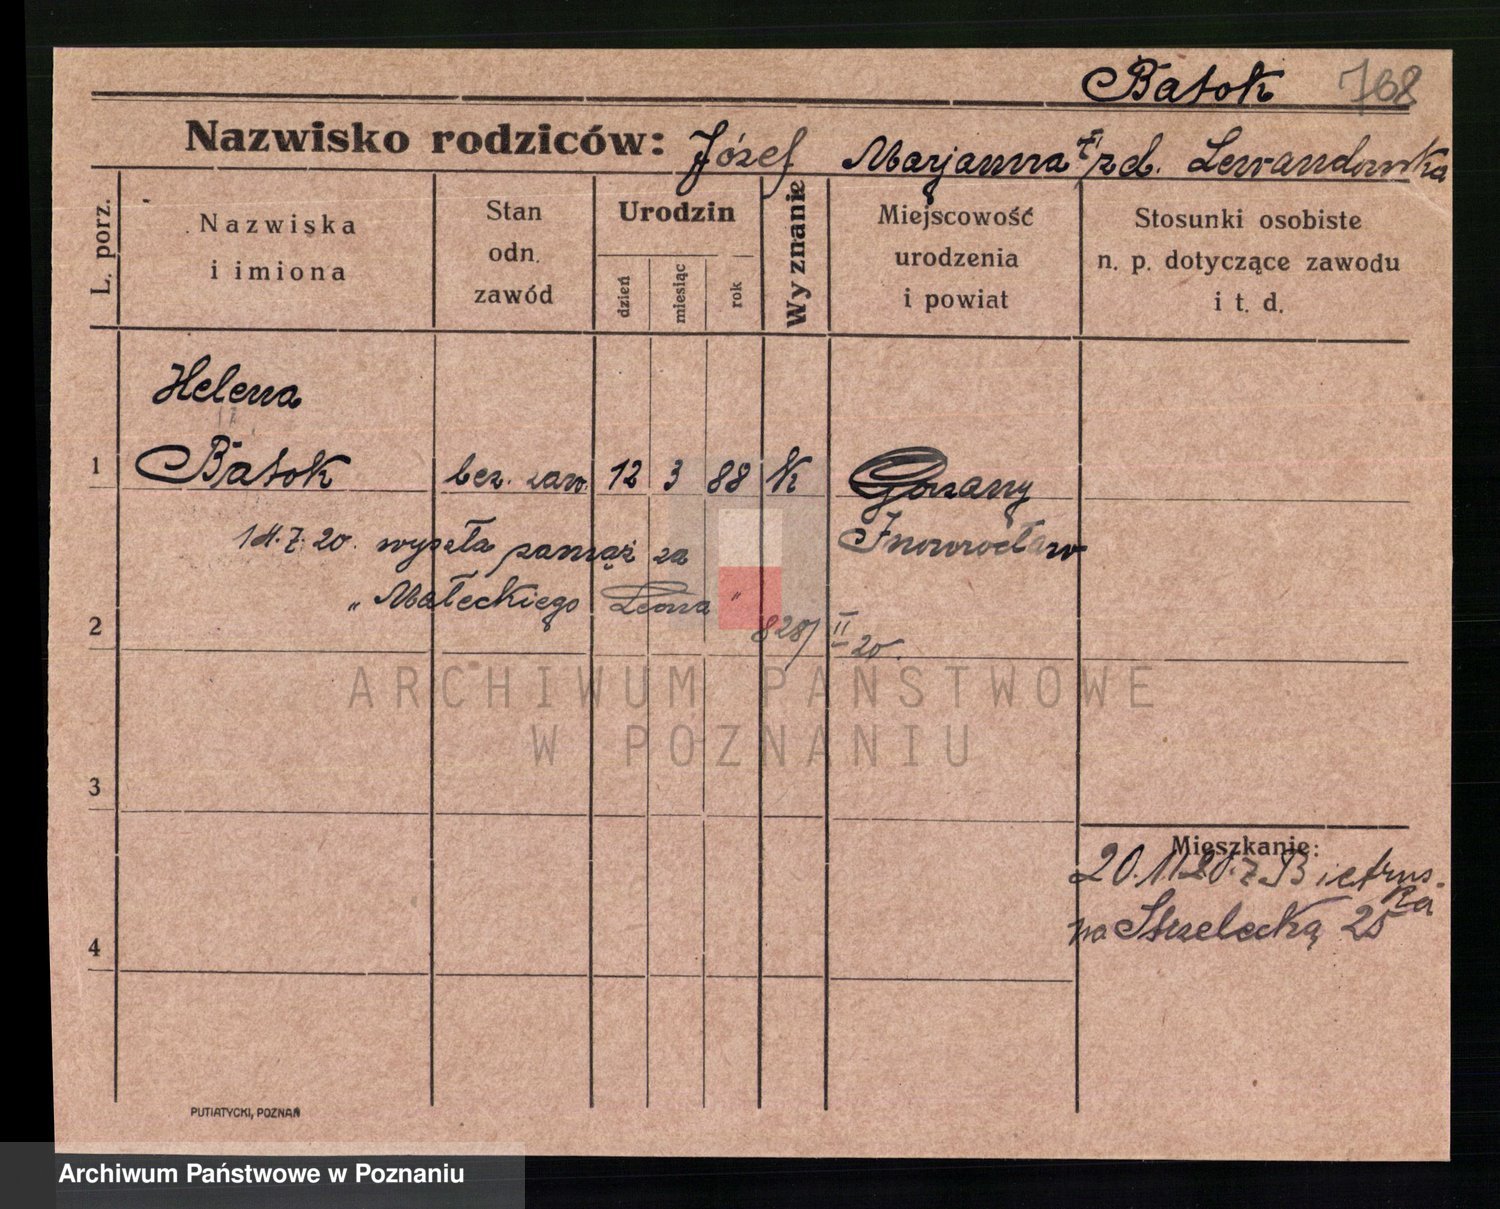 Batok 768
Nazwisko rodziców: Józef Marjanna z d. Lewandowska
L. porz.
Nazwiska i imiona
Stan odn. zawód
Urodzin
dzień
miesiąc
rok
Wyznanie
Miejscowość urodzenia i powiat
Stosunki osobiste n. p. dotyczące zawodu i t. d.
Helena
1 Batok bez. zaw. 12 3 88 K Gorzany
Inowrocław
14.7.20. wyszła zamąż za
„Małeckiego Leona"
2
828/II 20.
3
Mieszkanie:
20.11.20. z
na Strzelecką 25
4
PUTIATYCKI, POZNAŃ
ARCHIWUM PAŃSTWOWE
W POZNANIU
Archiwum Państwowe w Poznaniu